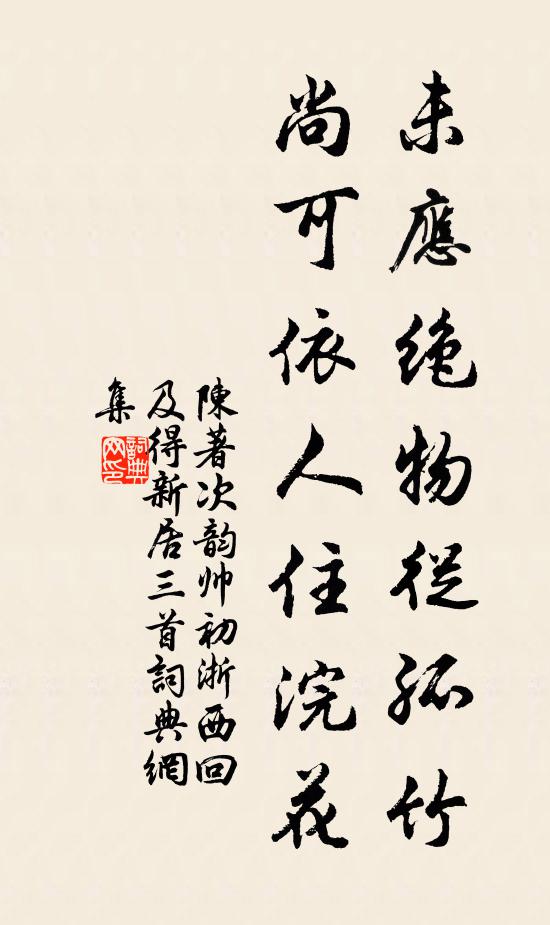 未應绝物從孤竹
尚可依人住浣花
陳著次韵帅初浙西回
及得新居三首詞典網
集
詞典
网印